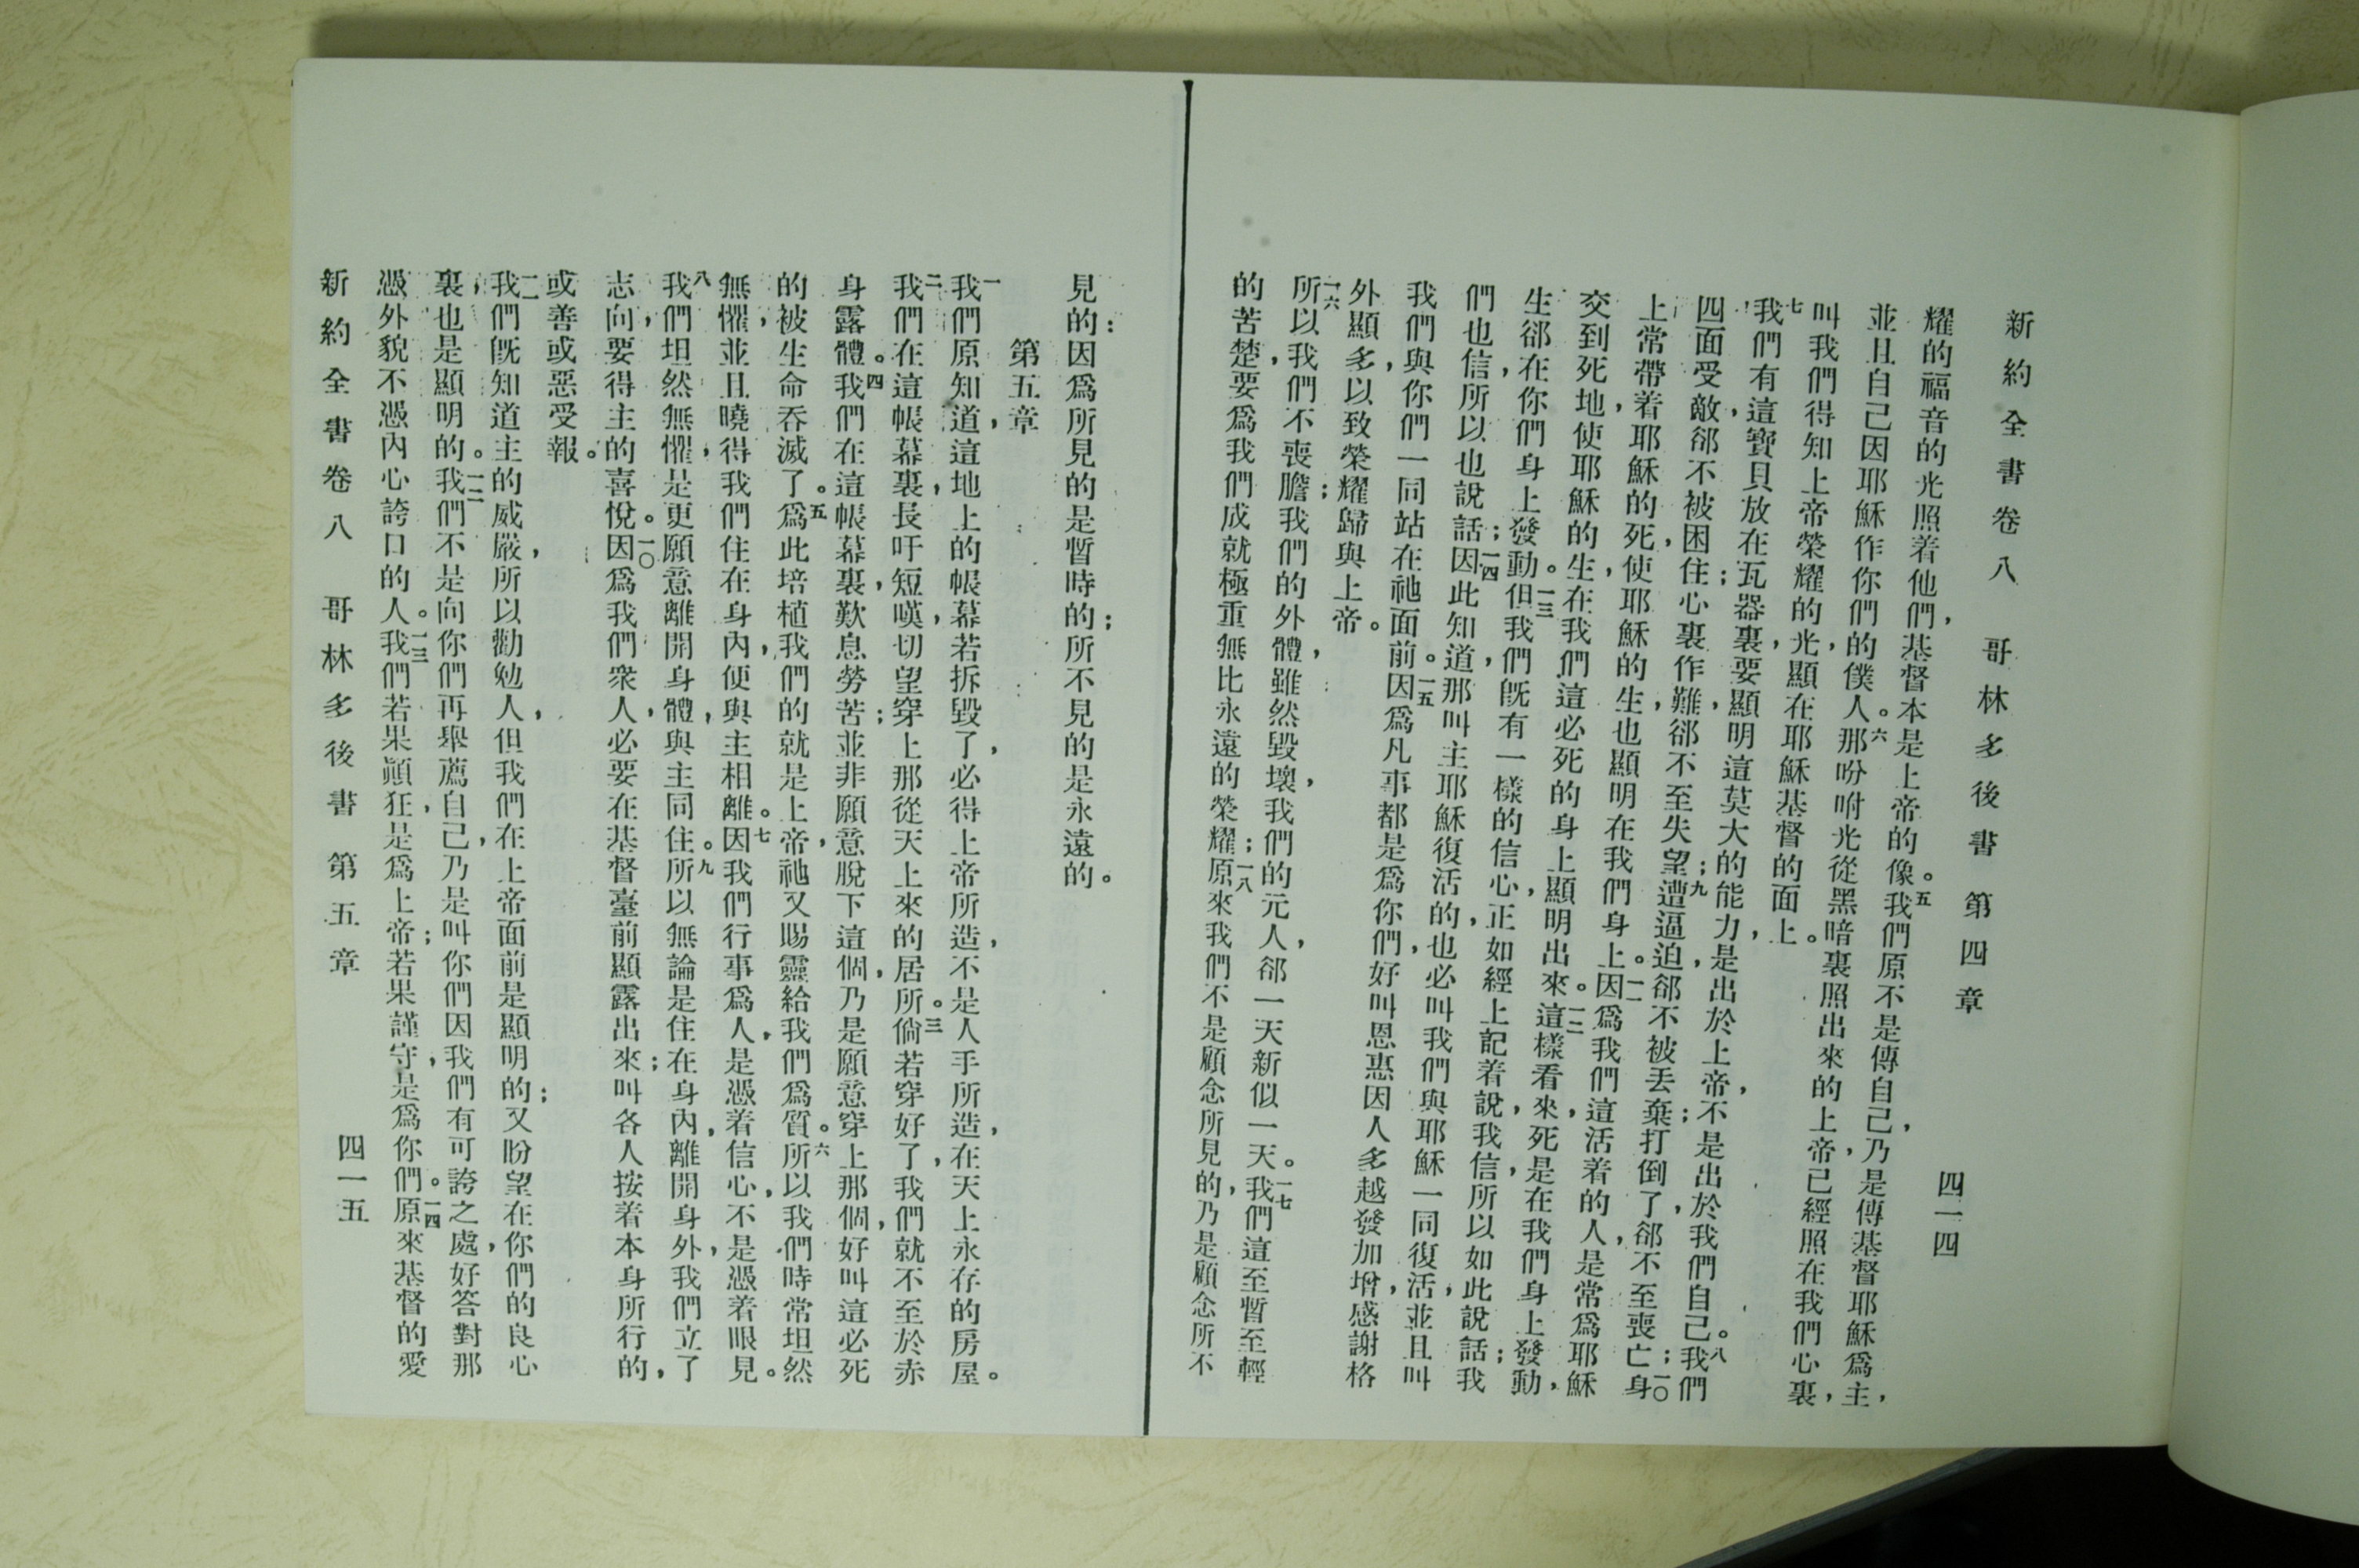 新約全書卷八 哥林多後書 第四章 四一四
耀的福音的光照着他們，基督本是上帝的像。五我們原不是傳自己，乃是傳基督耶穌爲主，
並且自己因耶穌作你們的僕人。六那吩咐光從黑暗裏照出來的上帝，已經照在我們心裏，
叫我們得知上帝榮耀的光，顯在耶穌基督的面上。
七我們有這寶貝放在瓦器裏，要顯明這莫大的能力，是出於上帝，不是出於我們自己。八我們
四面受敵，郤不被困住；心裏作難，郤不至失望；九遭逼迫，郤不被丟棄；打倒了，郤不至喪亡；一〇身
上常帶着耶穌的死，使耶穌的生，也顯明在我們身上。一一因爲我們這活着的人，是常爲耶穌
交到死地，使耶穌的生，在我們這必死的身上顯明出來。一二這樣看來，死是在我們身上發動，
生郤在你們身上發動。一三但我們旣有一樣的信心，正如經上記着說，我信，所以如此說話；我
們也信，所以也說話；一四因此知道，那叫主耶穌復活的，也必叫我們與耶穌一同復活，並且叫
我們與你們一同站在祂面前。一五因爲凡事都是爲你們，好叫恩惠因人多越發加增，感謝格
外顯多，以致榮耀歸與上帝。
一六所以我們不喪膽；我們的外體，雖然毀壞，我們的元人，郤一天新似一天。一七我們這至暫至輕
的苦楚，要爲我們成就極重無比永遠的榮耀；一八原來我們不是顧念所見的，乃是顧念所不
見的：因爲所見的是暫時的；所不見的是永遠的。
第五章
一我們原知道，這地上的帳幕若拆毀了，必得上帝所造，不是人手所造，在天上永存的房屋。
二我們在這帳幕裏，長吁短嘆，切望穿上那從天上來的居所。三倘若穿好了，我們就不至於赤
身露體。四我們在這帳幕裏，歎息勞苦；並非願意脫下這個，乃是願意穿上那個，好叫這必死
的被生命吞滅了。五爲此培植我們的就是上帝，祂又賜靈給我們爲質。六所以我們時常坦然
無懼，並且曉得我們住在身內，便與主相離。七因我們行事爲人，是憑着信心，不是憑着眼見。
八我們坦然無懼，是更願意離開身體，與主同住。九所以無論是住在身內，離開身外，我們立了
志向，要得主的喜悅。一〇因爲我們衆人，必要在基督臺前顯露出來；叫各人按着本身所行的，
或善或惡受報。
一一我們旣知道主的威嚴，所以勸勉人，但我們在上帝面前是顯明的；又盼望在你們的良心
裏，也是顯明的。一二我們不是向你們再舉薦自己，乃是叫你們因我們有可誇之處，好答對那
憑外貌不憑內心誇口的人。一三我們若果顚狂，是爲上帝；若果謹守，是爲你們。一四原來基督的愛
新約全書卷八 哥林多後書 第五章 四一五